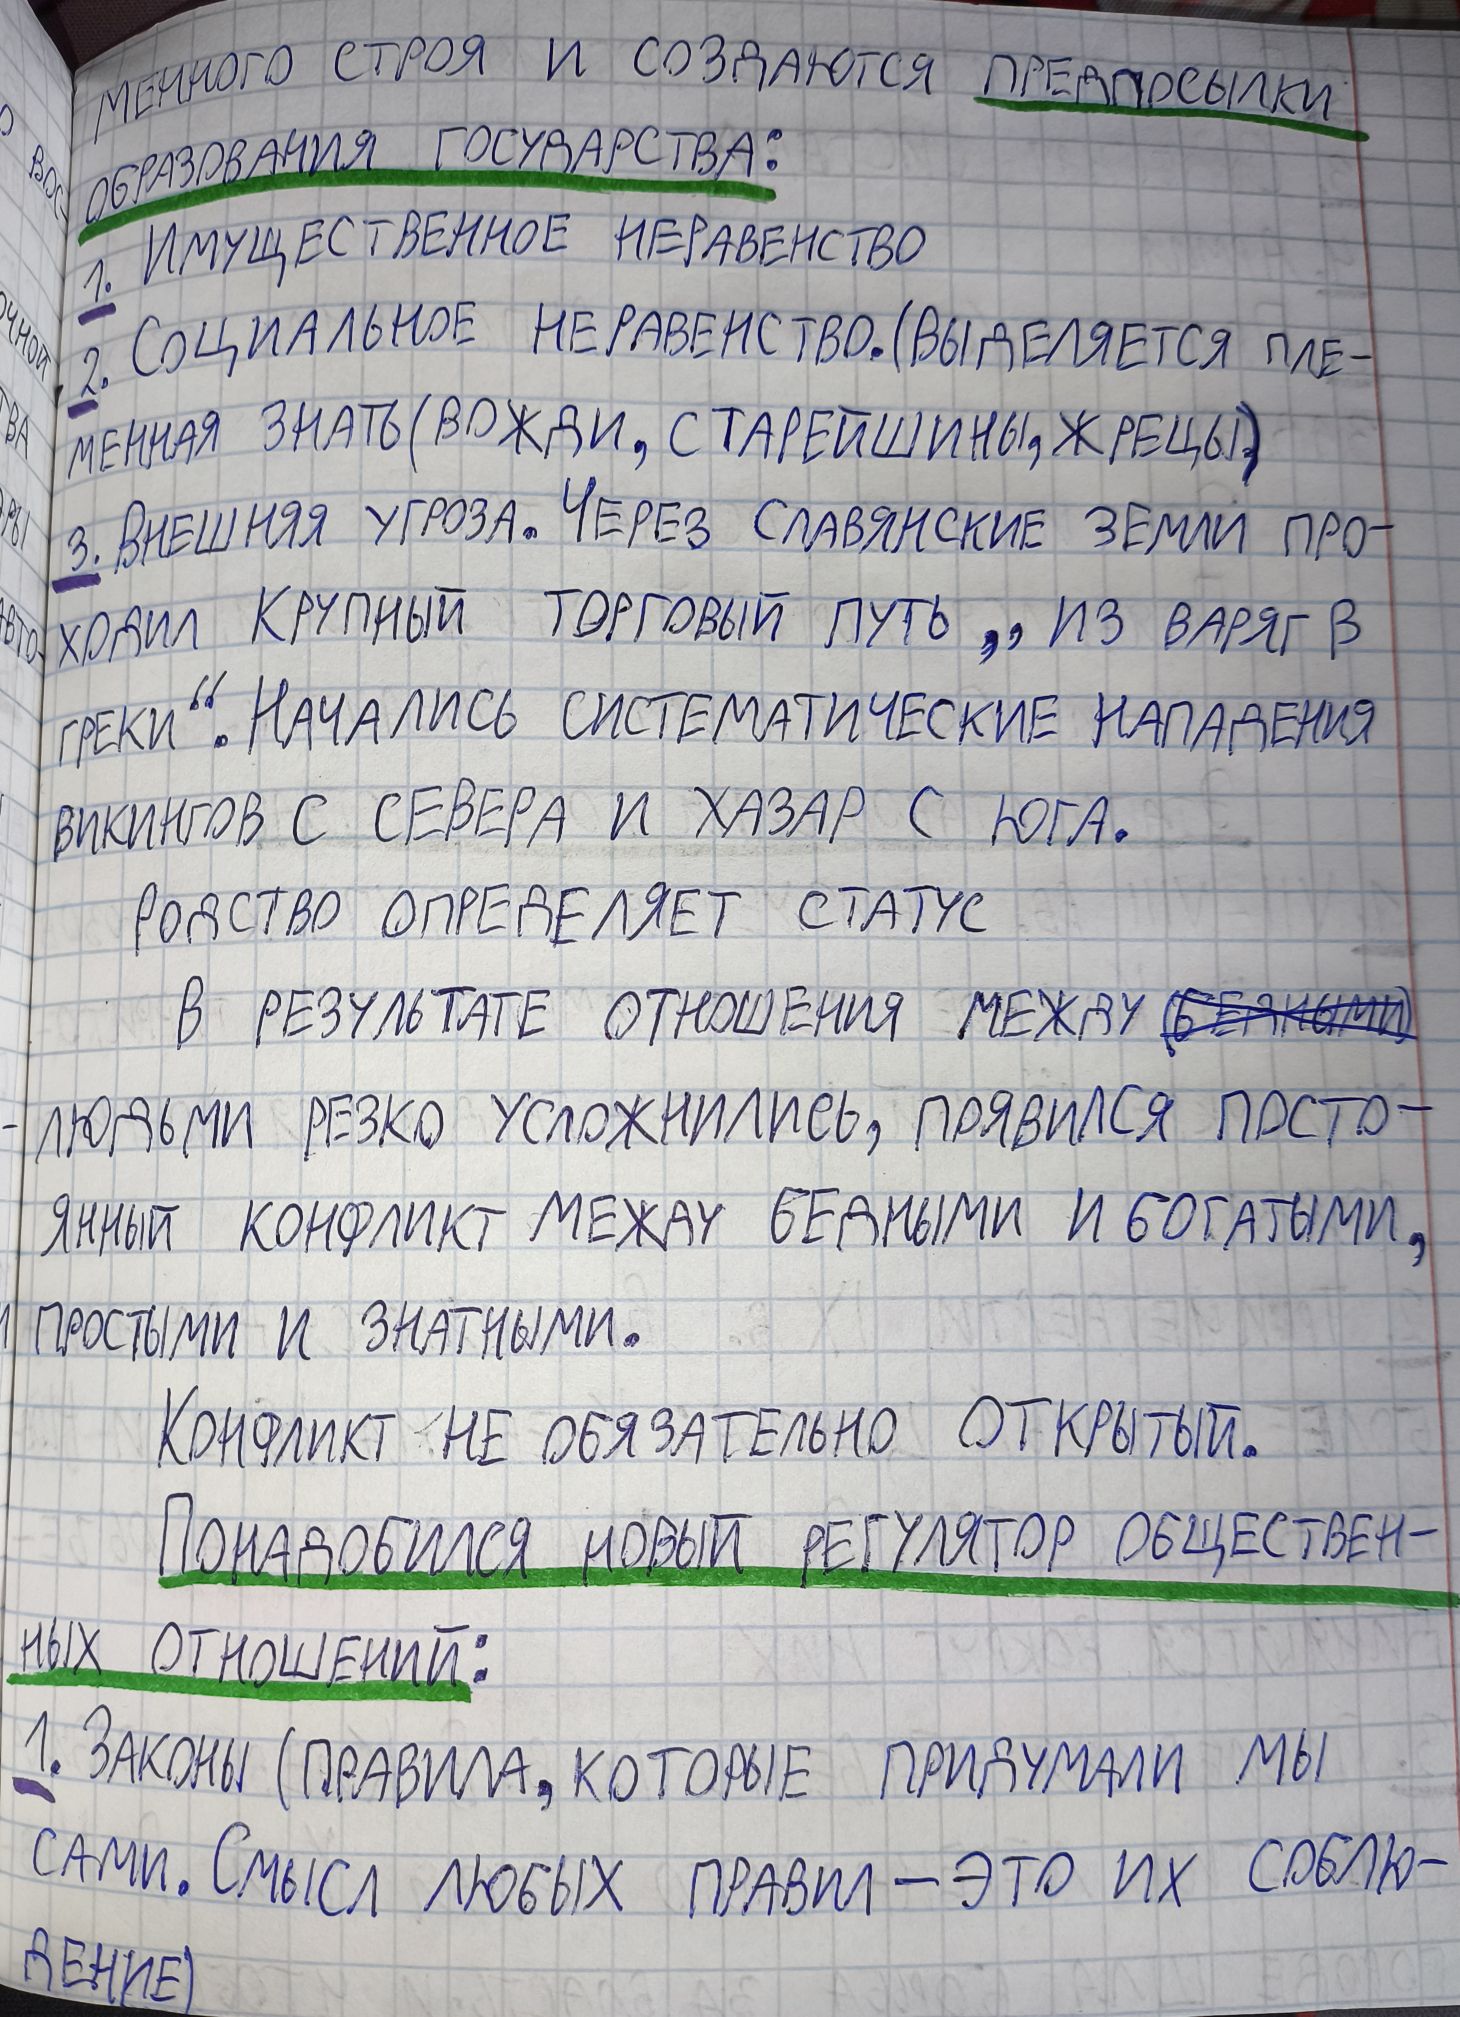 менного строя и создаются предпосылки
образования государства:
1. Имущественное неравенство
2. Социальное неравенство. (Выделяется пле-
менная знать (вожди, старейшины, жрецы)
3. Внешняя угроза. Через славянские земли про-
ходил крупный торговый путь ,,из варяг в
греки“. Начались систематические нападения
викингов с севера и хазар с юга.
Родство определяет статус
В результате отношения между (бедными)
людьми резко усложнились, появился посто-
янный конфликт между бедными и богатыми,
простыми и знатными.
Конфликт не обязательно открытый.
Понадобился новый регулятор обществен-
ных отношений:
1. Законы (правила, которые придумали мы
сами. Смысл любых правил – это их соблю-
дение)